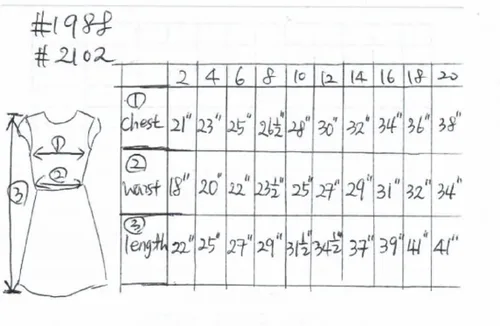 #1988
#2102
2 4 6 8 10 12 14 16 18 20
① chest 21" 23" 25" 26½" 28" 30" 32" 34" 36" 38"
② waist 18" 20" 22" 23½" 25" 27" 29" 31" 32" 34"
③ length 22" 25" 27" 29" 31½" 34½" 37" 39" 41" 41"
①
②
③